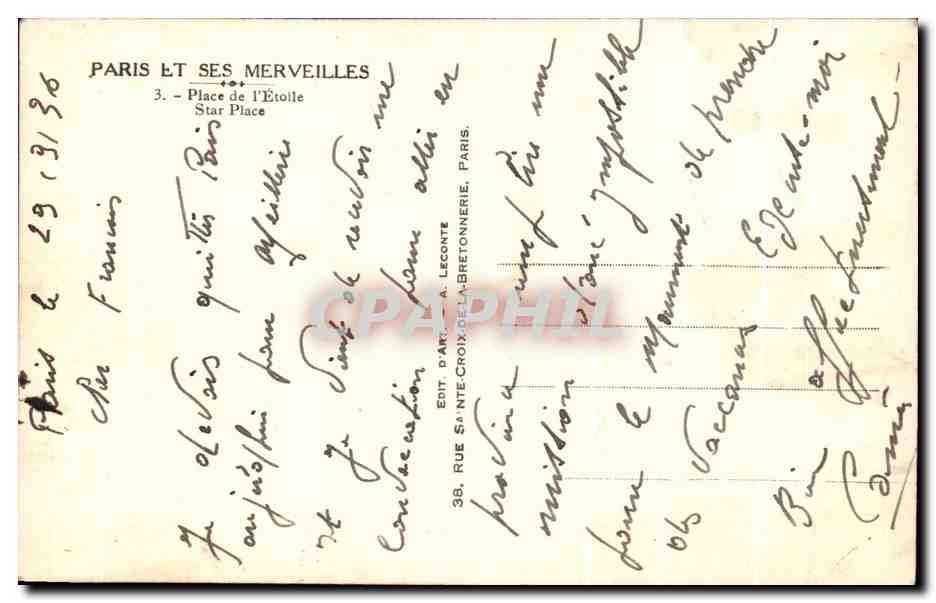 PARIS ET SES MERVEILLES
3. - Place de l'Étoile
Star Place
EDIT. D'ART A. LECONTE
38, RUE SAINTE-CROIX-DE-LA-BRETONNERIE, PARIS.
CPAPHIL
Paris le 29
Cher Francis
Je devais quitter Paris
pour
et Je viens de recevoir une
convocation pour aller en
province remplir une
mission donc impossible
pour le moment de prendre
des vacances Excuse-moi
Bien affectueusement